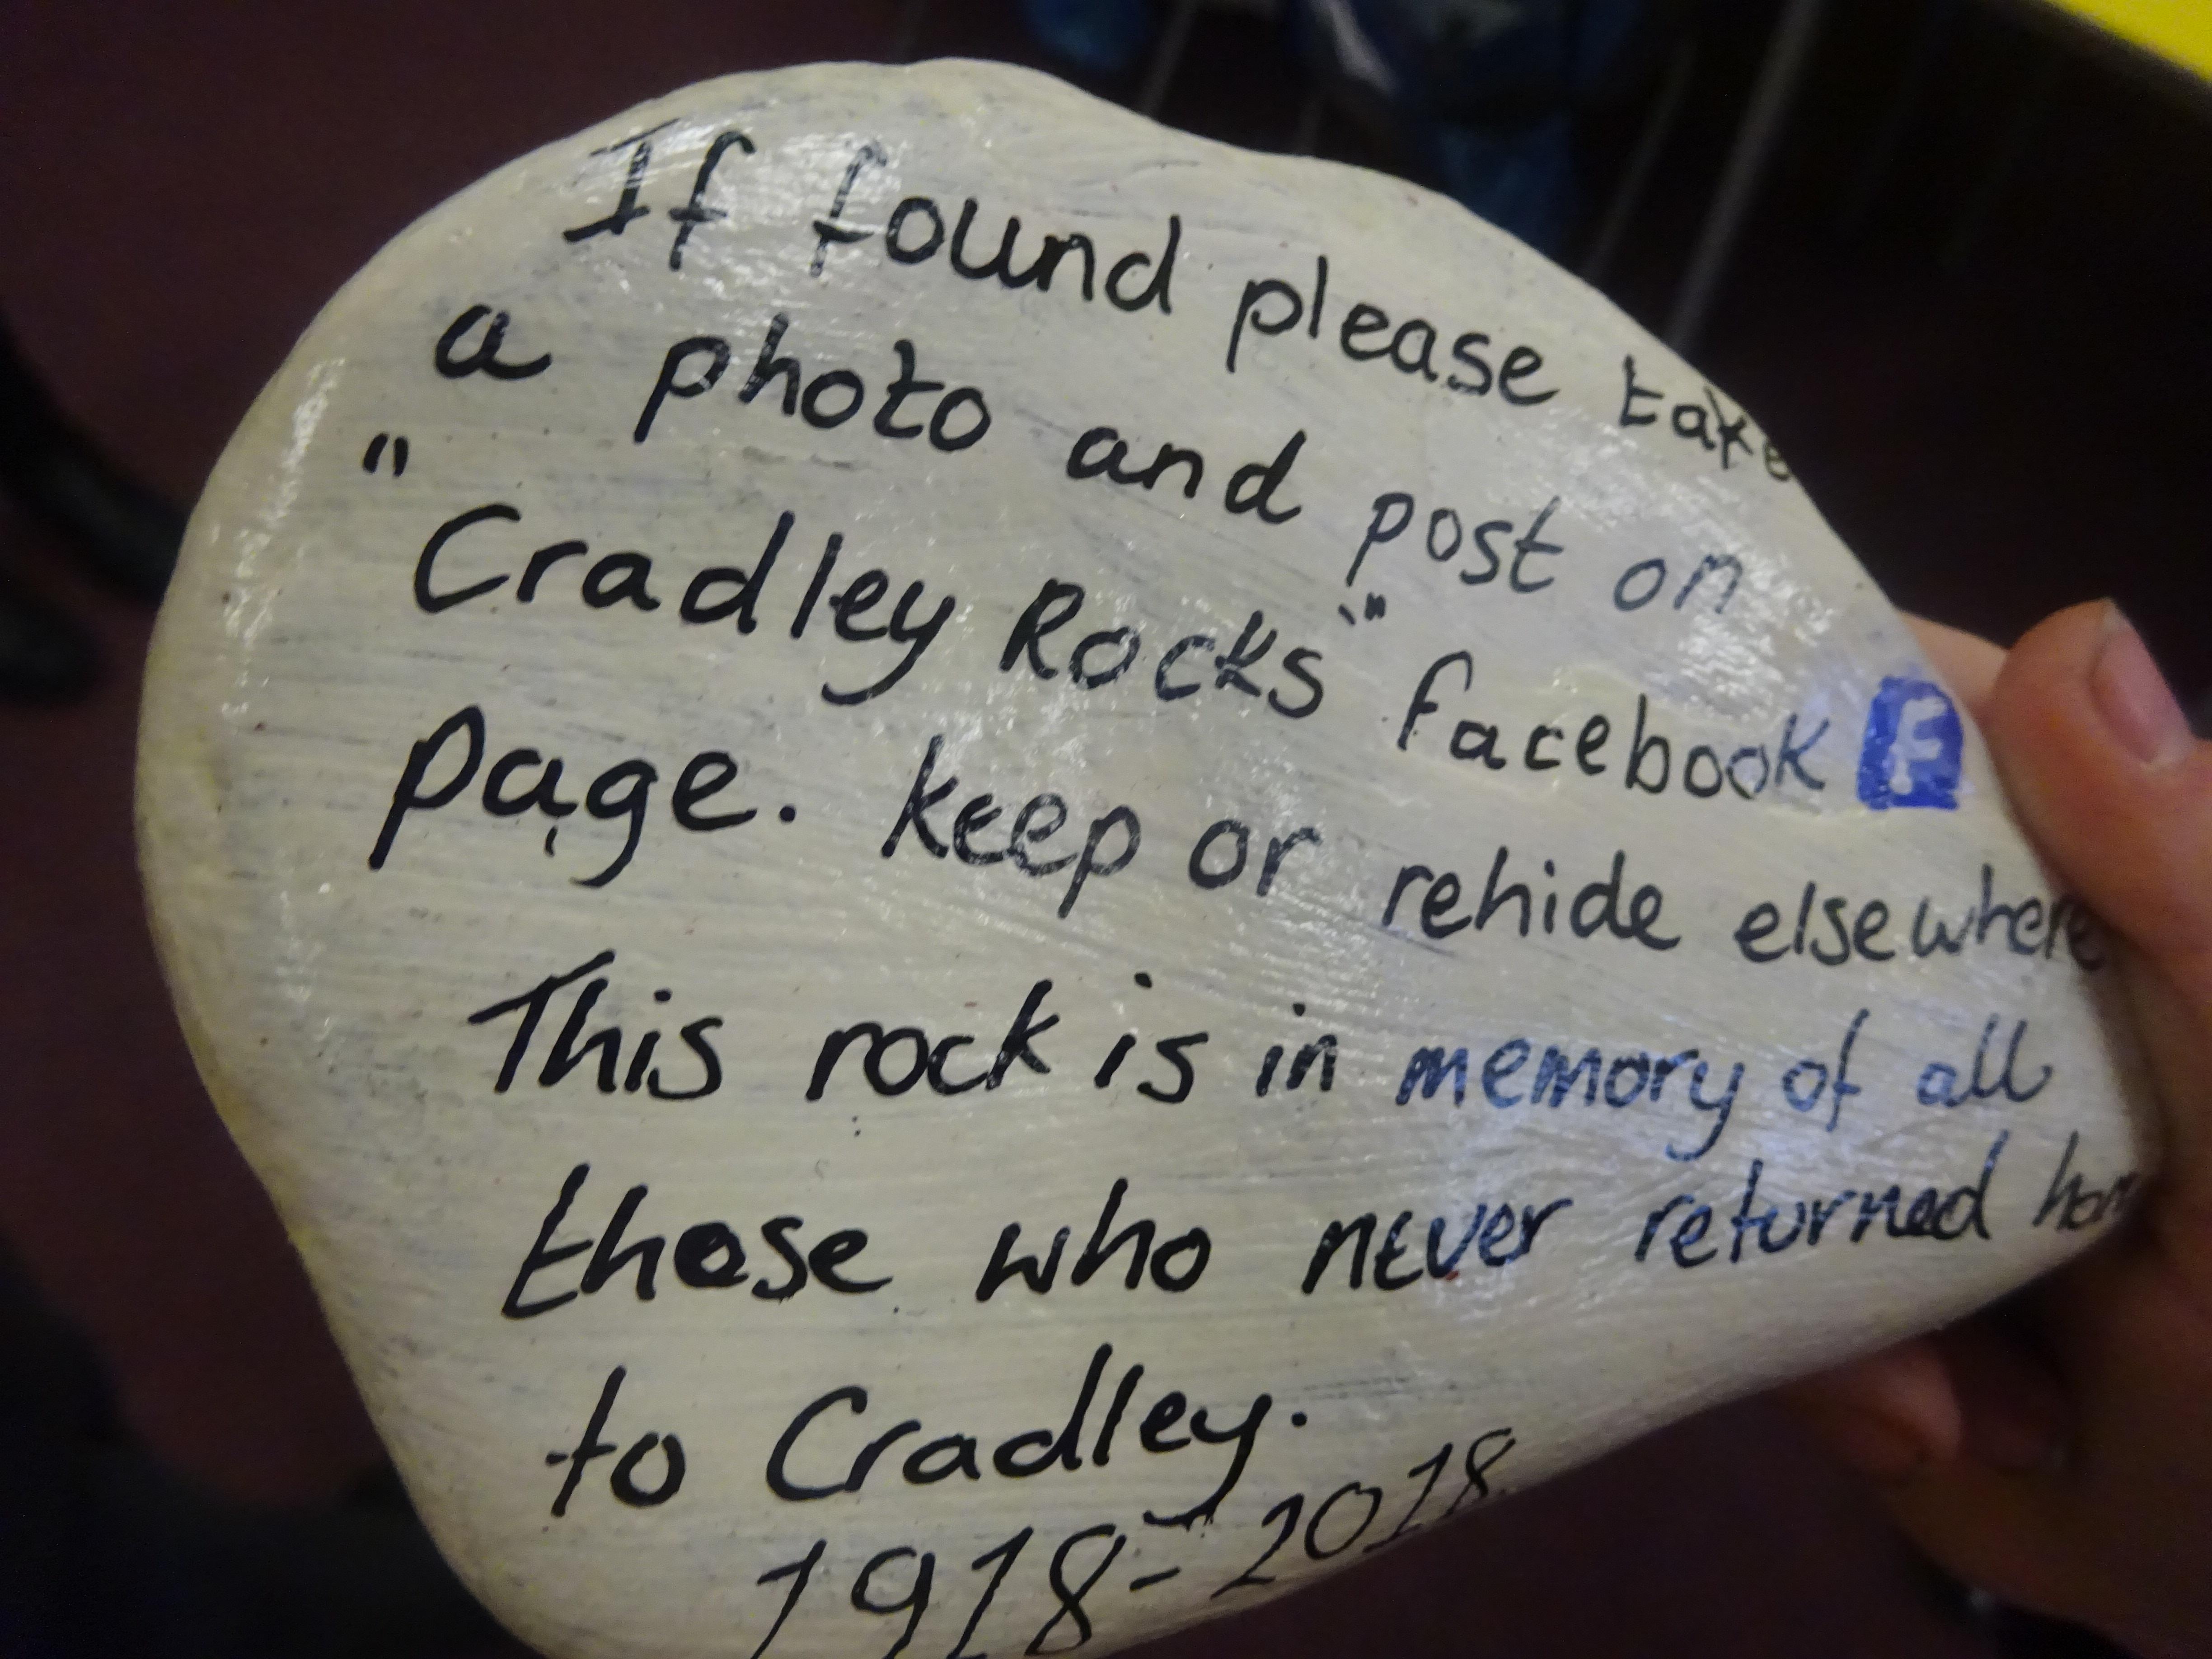 If found please take
a photo and post on
"Cradley Rocks" facebook f
page. keep or rehide elsewhere
This rock is in memory of all
those who never returned hom
to Cradley.
1918-2018